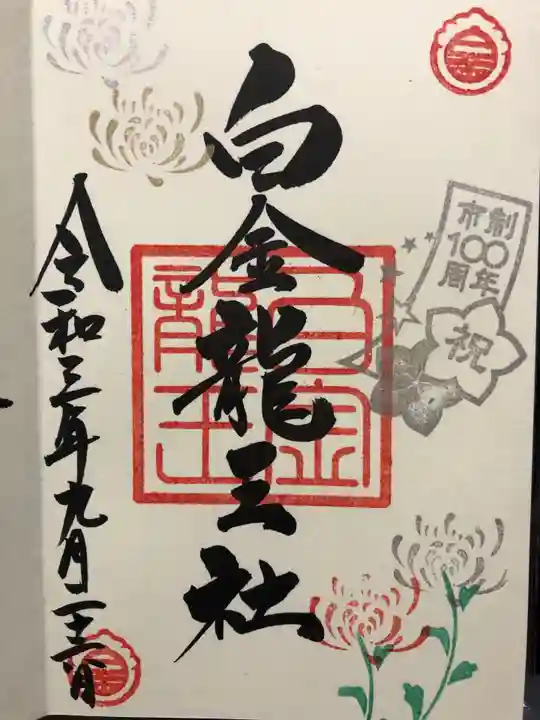 白金龍王社
白金
龍王
市制
100
周年
祝
令和三年九月二十三日